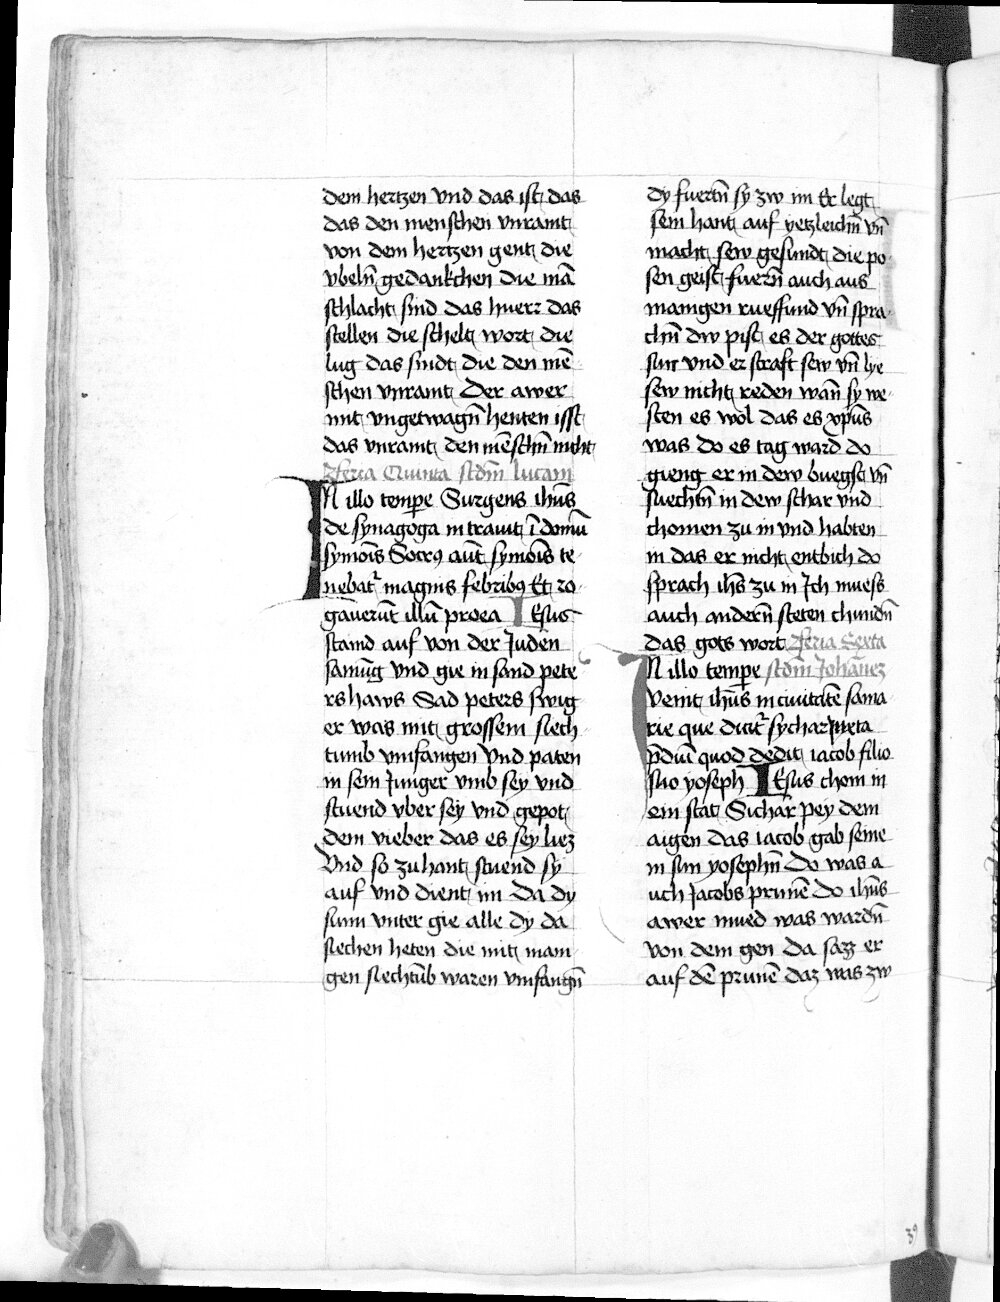 dem hertzen vnd das ist das
das den menschen vnraint
von dem hertzen gent die
vbeln̄ gedankchen die mā
schlacht sind das huerr das
stellen die schelt wort die
lug das sindt die den mē
schen vnraint Der awer
mit vngetwagn̄ henten isst
das vnraint den mēschn̄ nicht
Feria Quinta scdm̄ lucam
IN illo tempe Surgens ihūs
de synagoga intrauit ī domū
symoīs Socrꝯ aūt symoīs te
nebatᷣ magnis febribꝯ Et ro
gauerūt illū pro ea IEsus
stand auf von der Juden
samūg vnd gie in sand pete
rs haws Sad peters swig
er was mit grossem siech
tumb vmfangen Vnd paten
in sein Junger vmb sey vnd
stuend vber sey vnd gepot
dem vieber das es sey liez
Vnd so zuhant stuend sy
auf vnd dient im Da dy
sunn vnter gie alle dy da
siechen heten die mit main
gen siechtūb waren vmfangn̄
dy fuertn̄ sy zw im Er legt
sein hant auf yetzleichn̄ vn̄
macht sew gesundt die po
sen geist fuern̄ auch aus
mannigen rueffund vn̄ spra
chn̄ dw pist es der gottes
sun vnd er straft sew vn̄ lye
sew nicht reden wan̄ sy we
sten es wol das es xp̄us
was do es tag ward do
gieng er in dew buegst vn̄
suechtn̄ in dew schar vnd
chomen zu in vnd habten
in das er nicht entbich do
sprach ihs̄ zu in Ich muess
auch andern̄ steten chundn̄
das gots wort Feria Sexta
IN illo tempe scdm̄ Johānez
Venit ihūs in ciuitātē sama
rie que dicitᷣ sychar Iuxta
p̄diū quod dedit iacob filio
suo yoseph IEsus chom in
ein stat Sichar pey dem
aigen das iacob gab seine
m sun yosephn̄ Do was a
uch Jacobs prunnē Do ihūs
awer mued was wardn̄
von dem gen da sazz er
auf dē prunnē daz was zw
39